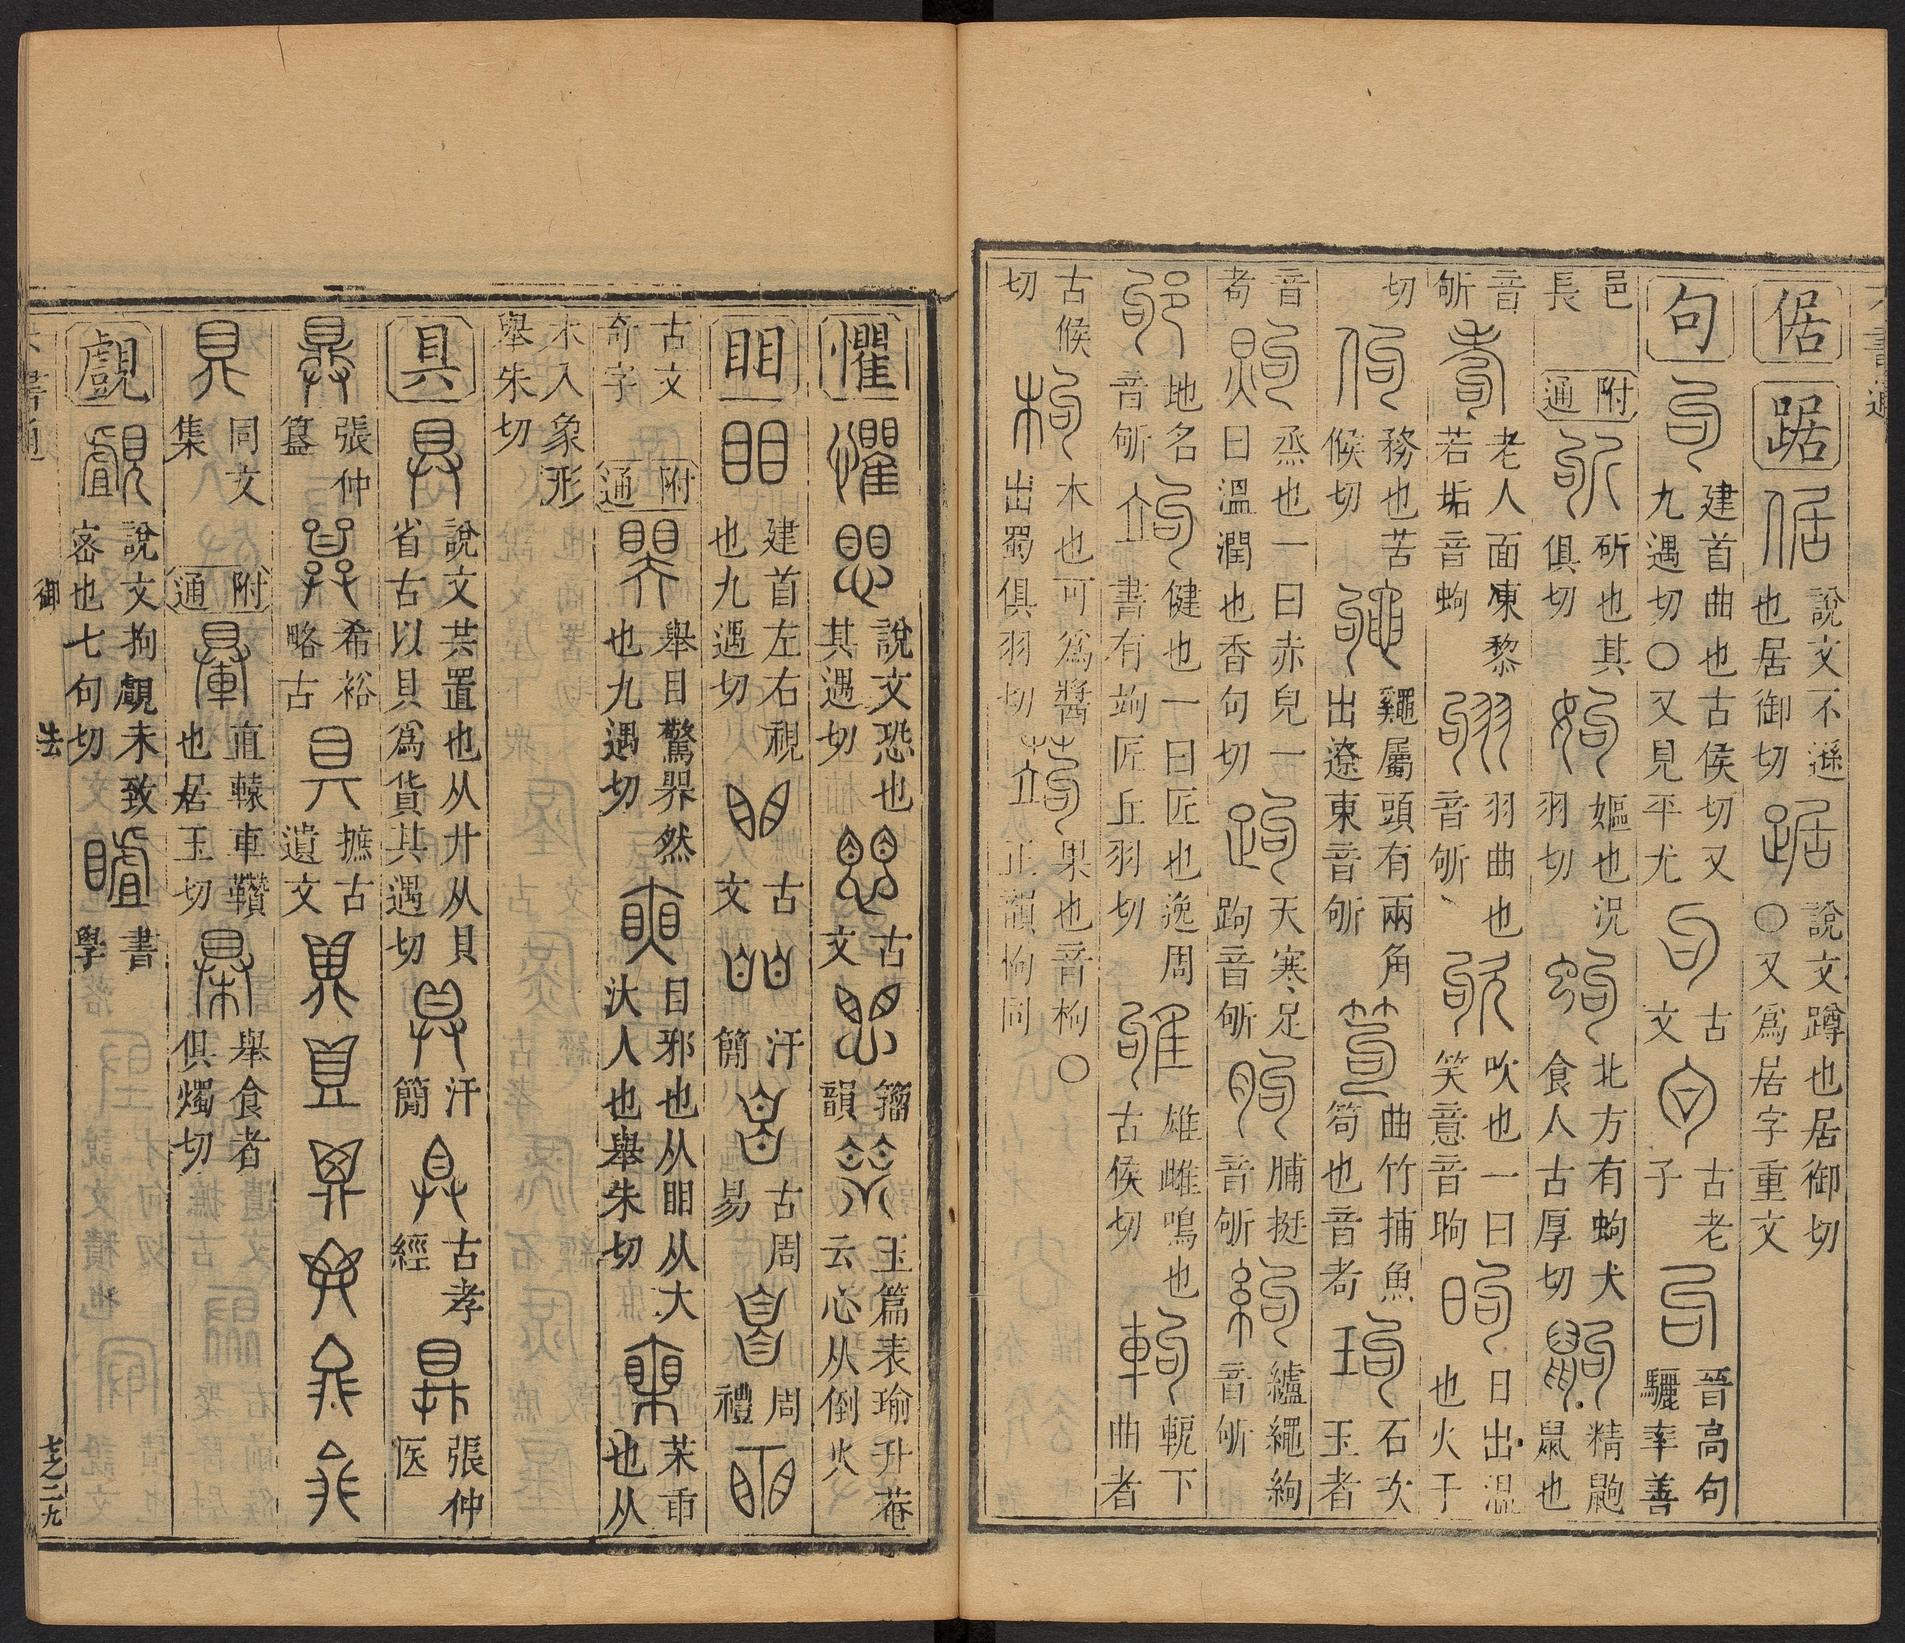 倨 踞 說文不遜也居御切 說文蹲也居御切〇又爲居字重文
句 建首曲也古侯切又九遇切〇又見平尤 古文 古老子 晉高句驪率善
邑長 附通 斫也其俱切 嫗也況羽切 北方有蚼犬食人古厚切 精鼩鼠也
音斪 老人面凍黎若垢音蚼 羽曲也音斪 吹也一曰笑意音呴 日出溫也火于
切 務也苦候切 鼅屬頭有兩角出遼東音斪 曲竹捕魚笱也音耇 石次玉者
音苟 烝也一曰赤皃一曰溫潤也香句切 天寒足跔音斪 脯挺音斪 纑繩絇音斪
地名音斪 健也一曰匠也逸周書有竘匠丘羽切 雄雌鳴也古侯切 軶下曲者
古候切 木也可爲醬出蜀俱羽切 果也音枸〇正韻枸同
懼 說文恐也其遇切 古文 籀韻 玉篇表瑜升菴云心从倒火
䀠 建首左右視也九遇切 古文 汗簡 古周易 周禮
古文奇字 附通 舉目驚界然也九遇切 目邪也从䀠从大汏人也舉朱切 芣臿也从
木入象形舉朱切
具 說文共置也从廾从貝省古以貝爲貨其遇切 汗簡 古孝經 張仲医
張仲簋 希裕略古 摭古遺文
同文集 附通 直轅車鞼也居玉切 舉食者俱燭切
覰 說文拘覰未致密也七句切 書學
御 去 七之二九